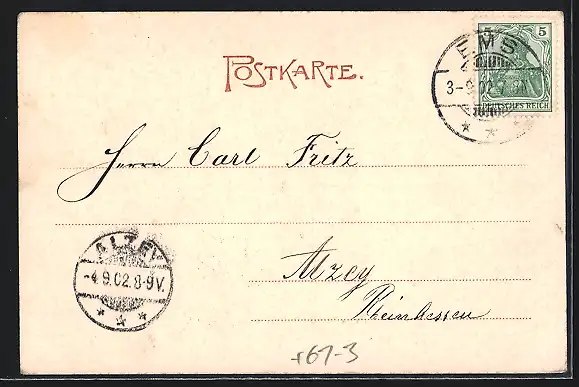 5 5
DEUTSCHES REICH
EMS
3-9 02 7
POSTKARTE.
Herrn Carl Fritz
ALZEY
-4.9.02.8-9V.
Alzey
Rheinhessen
r67-3